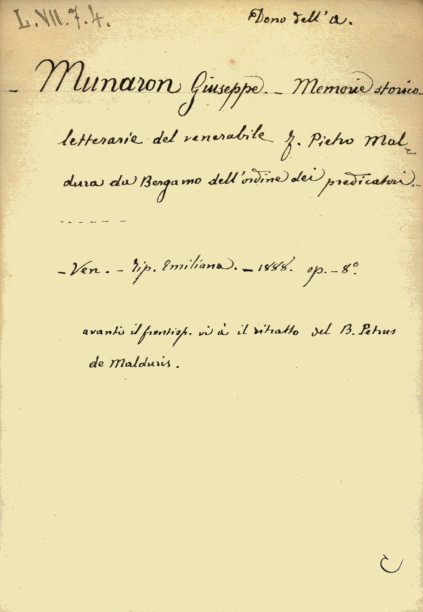 L.VII.7.4.
Dono dell'A.
- Munaron Giuseppe. - Memorie storico-
letterarie del venerabile f. Pietro Mal-
dura da Bergamo dell'ordine dei predicatori. -
- Ven. - Tip. Emiliana. - 1888. op. - 8°
avanti il frontisp. vi à il ritratto del B. Petrus
de Malduris.